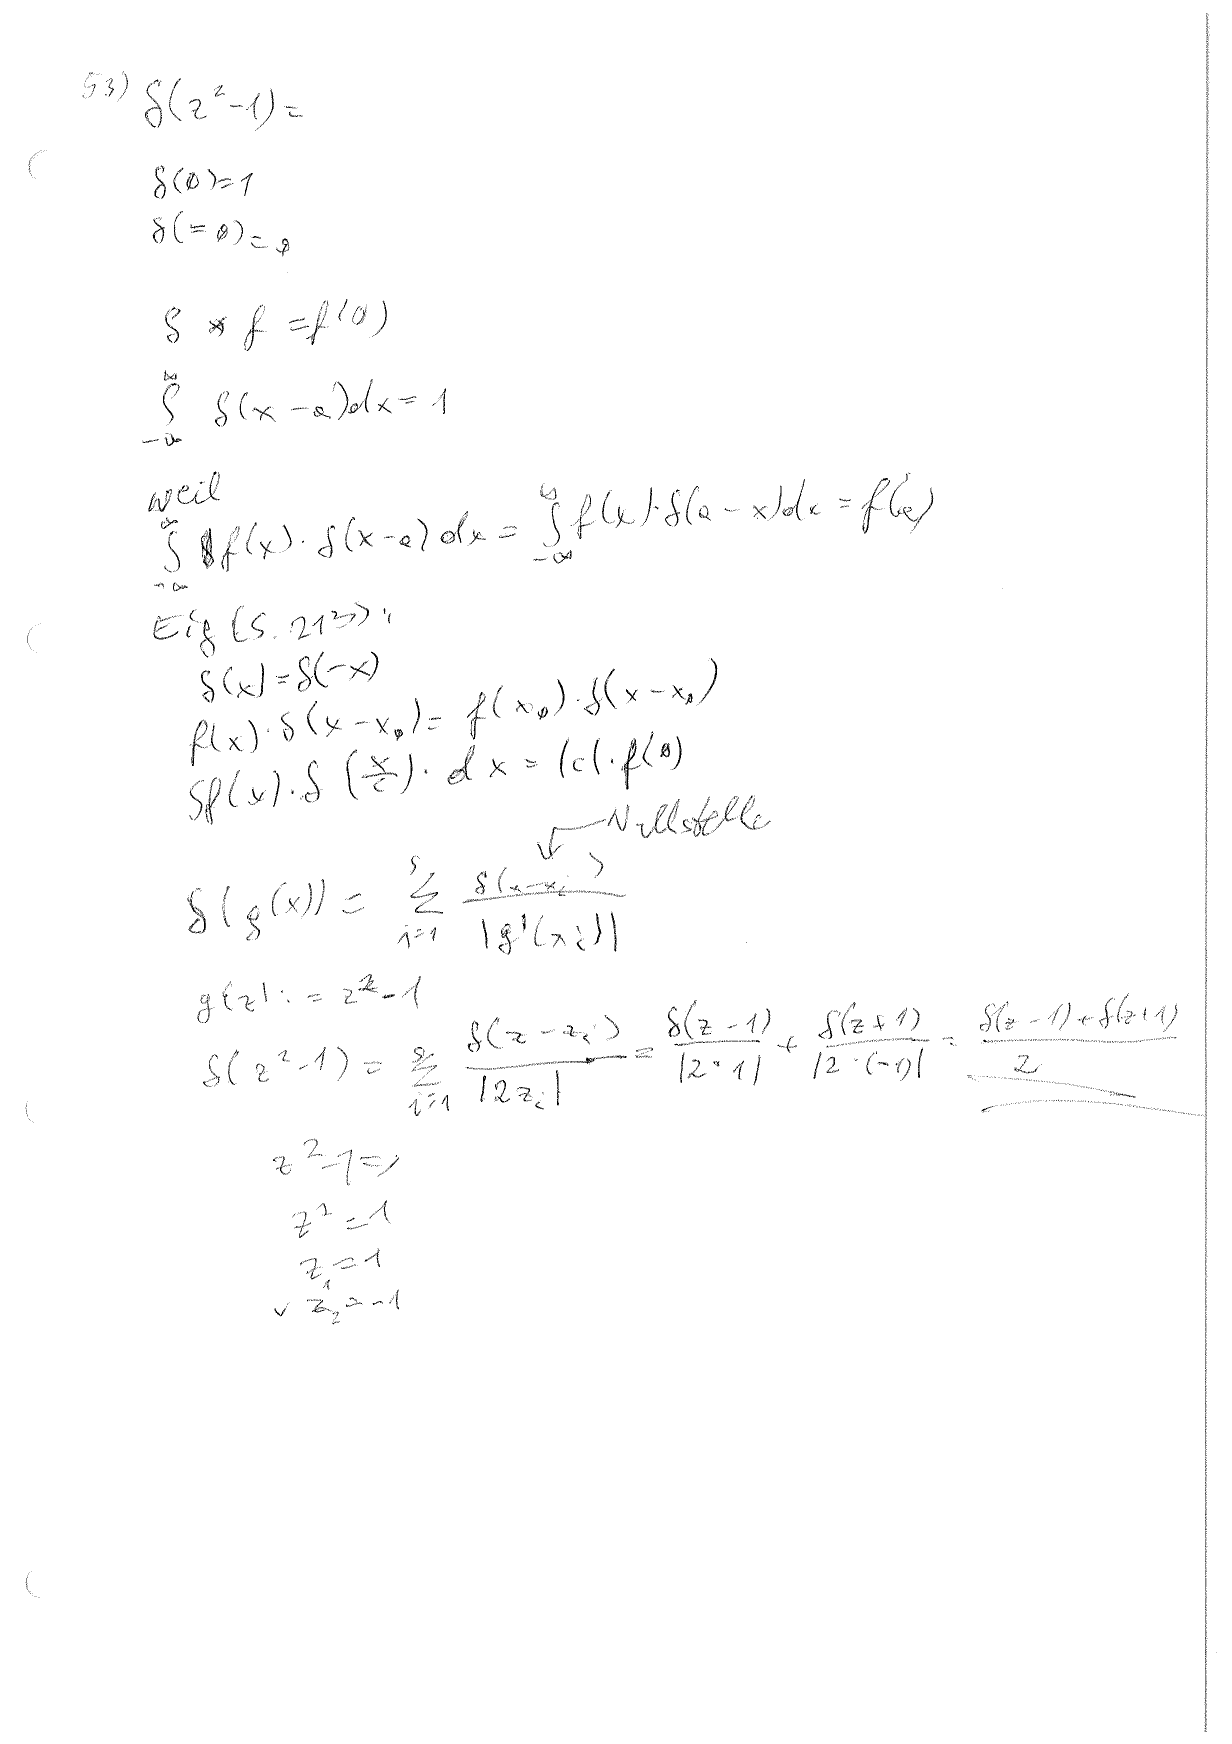 53) δ(z²-1)=
δ(0)=1
δ(≠0)=0
δ * f = f(0)
∫_{-∞}^{∞} δ(x-a)dx=1
weil
∫_{-∞}^{∞} f(x)·δ(x-a)dx = ∫_{-∞}^{∞} f(x)·δ(a-x)dx = f(a)
Eig (S. 213):
δ(x)=δ(-x)
f(x)·δ(x-x₀)= f(x₀)·δ(x-x₀)
∫f(x)·δ(x/c)·dx = |c|·f(0)
Nullstelle
δ(g(x)) = Σ_{i=1} δ(x-x_i) / |g'(x_i)|
g(z):= z²-1
δ(z²-1) = Σ_{i=1}^{2} δ(z-z_i) / |2z_i| = δ(z-1) / |2·1| + δ(z+1) / |2·(-1)| = (δ(z-1)+δ(z+1)) / 2
z²-1=
z²=1
z₁=1
∨ z₂=-1